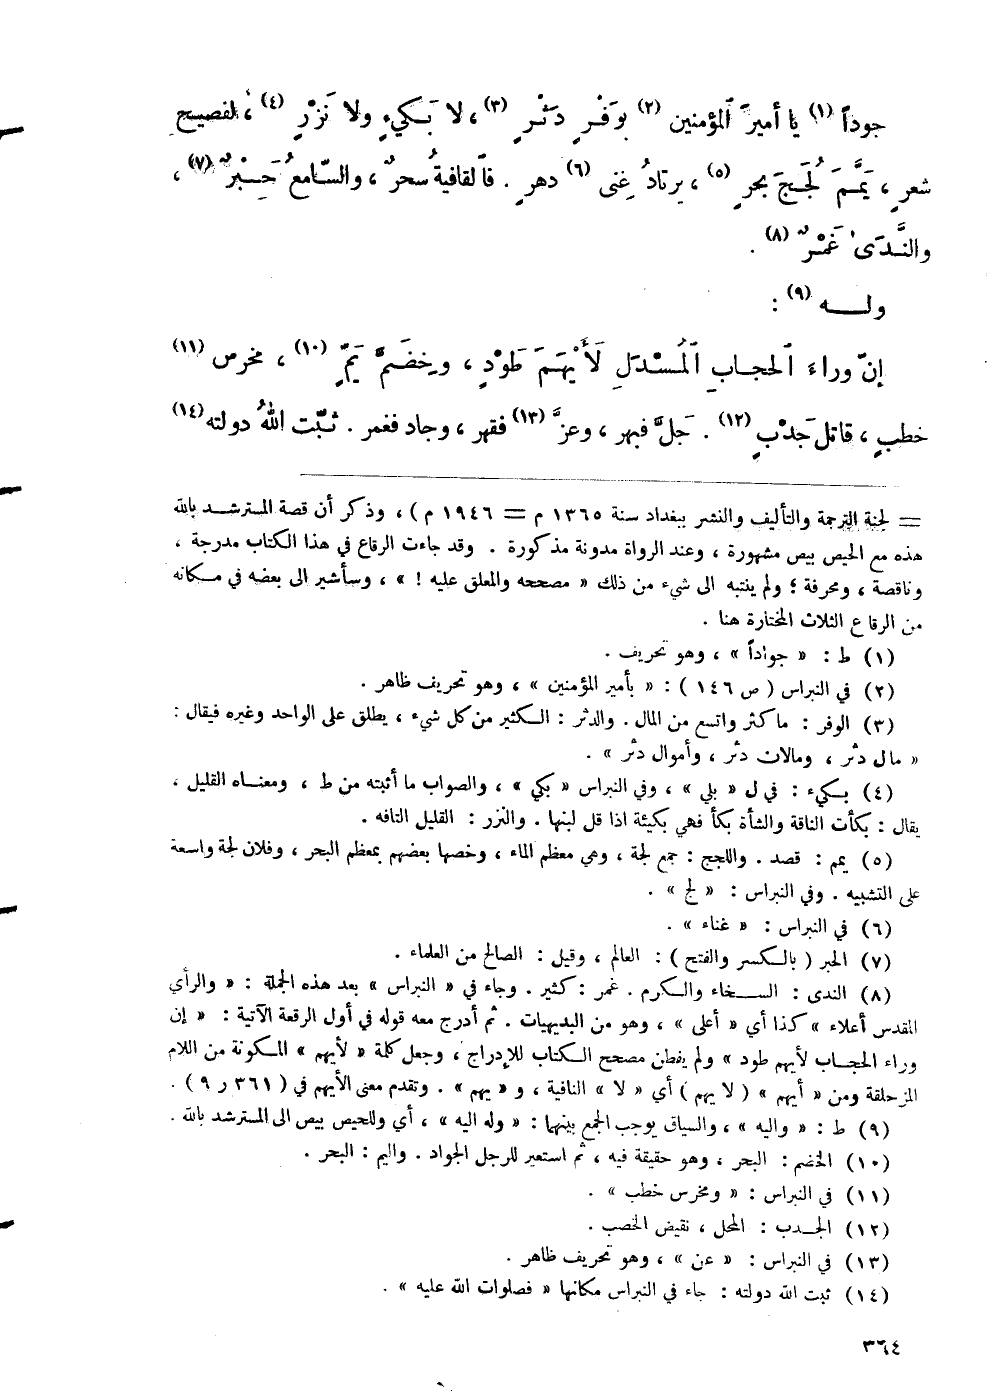 جوداً (١) يا أميرَ ٱلمؤمنين (٢) بوَفْرٍ دَثْرٍ (٣) ، لا بَكيءٍ ولا نَزْرٍ (٤) ، لفصيحِ
شعرٍ ، يَمَّمَ لُجَجَ بحرٍ (٥) ، يرتادُ غِنى (٦) دهرٍ . فٱلقافيةُ سحرٌ ، والسّامعُ حِبْرٌ (٧) ،
والنَّدَىٰ غَمْرٌ (٨) .
ولـــه (٩) :
إنّ وراءَ ٱلحجابِ ٱلمُسْدَلِ لَأَيْهَمَ طَوْدٍ ، وخِضَمَّ يَمٍّ (١٠) ، مخرس (١١)
خطبٍ ، قاتل جَدْبٍ (١٢) . جَلَّ فبهر ، وعزَّ (١٣) فقهر ، وجاد فغمر . ثبّت اللهُ دولته (١٤)
= لجنة الترجمة والتأليف والنشر ببغداد سنة ١٣٦٥ م = ١٩٤٦ م ) ، وذكر أن قصة المسترشد بالله
هذه مع الحيص بيص مشهورة ، وعند الرواة مدونة مذكورة . وقد جاءت الرقاع في هذا الكتاب مدرجة ،
وناقصة ، ومحرفة ؛ ولم ينتبه الى شيء من ذلك « مصححه والمعلق عليه ! » ، وسأشير الى بعضه في مكانه
من الرقاع الثلاث المختارة هنا .
(١) ط : « جواداً » ، وهو تحريف .
(٢) في النبراس ( ص ١٤٦ ) : « بأمير المؤمنين » ، وهو تحريف ظاهر .
(٣) الوفر : ما كثر واتسع من المال . والدثر : الكثير من كل شيء ، يطلق على الواحد وغيره فيقال :
« مال دثر ، ومالات دثر ، وأموال دثر » .
(٤) بكيء : في ل « بلي » ، وفي النبراس « بكي » ، والصواب ما أثبته من ط ، ومعناه القليل ،
يقال : بكأت الناقة والشأة بكأ فهي بكيئة اذا قل لبنها . والنزر : القليل التافه .
(٥) يمم : قصد . واللجج : جمع لجة ، وهي معظم الماء ، وخصها بعضهم بمعظم البحر ، وفلان لجة واسعة
على التشبيه . وفي النبراس : « لج » .
(٦) في النبراس : « غناء » .
(٧) الحبر ( بالكسر والفتح ) : العالم ، وقيل : الصالح من العلماء .
(٨) الندى : السخاء والكرم . غمر : كثير . وجاء في « النبراس » بعد هذه الجملة : « والرأي
المقدس أعلاء » كذا أي « أعلى » ، وهو من البديهيات . ثم أدرج معه قوله في أول الرقعة الآتية : « إن
وراء الحجاب لأيهم طود » ولم يفطن مصحح الكتاب للإدراج ، وجعل كلمة « لأيهم » المكونة من اللام
المزحلقة ومن « أيهم » ( لا يهم ) أي « لا » النافية ، و « يهم » . وتقدم معنى الأيهم في ( ٣٦١ ر ٩ ) .
(٩) ط : « واليه » ، والسياق يوجب الجمع بينهما : « وله اليه » ، أي وللحيص بيص الى المسترشد بالله .
(١٠) الخضم : البحر ، وهو حقيقة فيه ، ثم استعير للرجل الجواد . واليم : البحر .
(١١) في النبراس : « ومخرس خطب » .
(١٢) الجدب : المحل ، نقيض الخصب .
(١٣) في النبراس : « عن » ، وهو تحريف ظاهر .
(١٤) ثبت الله دولته : جاء في النبراس مكانها « فصلوات الله عليه » .
٣٦٤